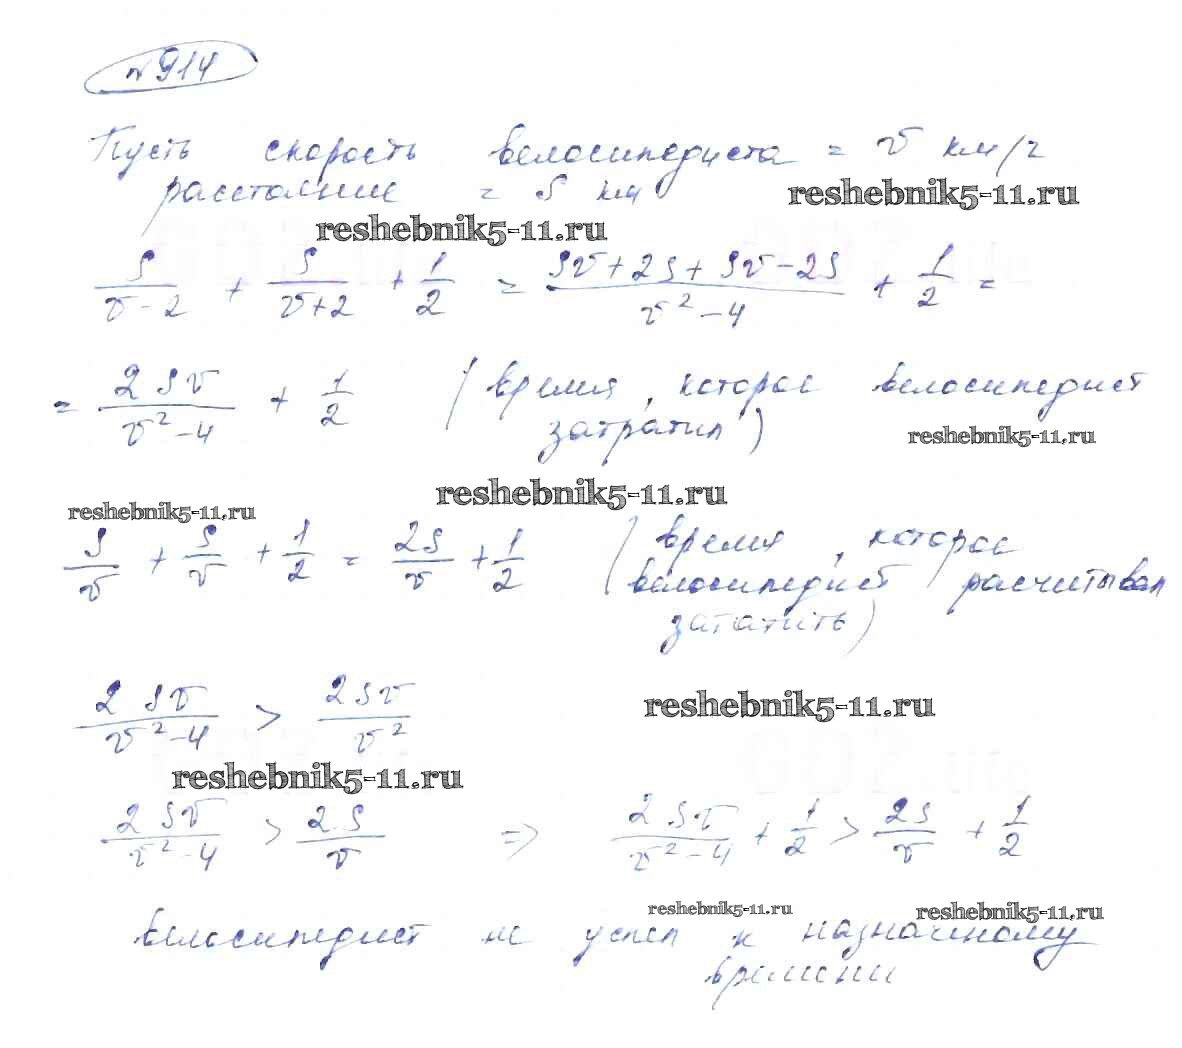 №914
Пусть скорость велосипедиста = v км/ч
расстояние = S км
reshebnik5-11.ru
reshebnik5-11.ru
S/(v-2) + S/(v+2) + 1/2 = (Sv+2S+Sv-2S)/(v²-4) + 1/2 =
= 2Sv/(v²-4) + 1/2 (время, которое велосипедист
затратил)
reshebnik5-11.ru
reshebnik5-11.ru
reshebnik5-11.ru
S/v + S/v + 1/2 = 2S/v + 1/2 (время, которое
велосипедист расчитывал
зататить)
2Sv/(v²-4) > 2Sv/v²
reshebnik5-11.ru
reshebnik5-11.ru
2Sv/(v²-4) > 2S/v => 2Sv/(v²-4) + 1/2 > 2S/v + 1/2
reshebnik5-11.ru
reshebnik5-11.ru
велосипедист не успел к назначному
времени